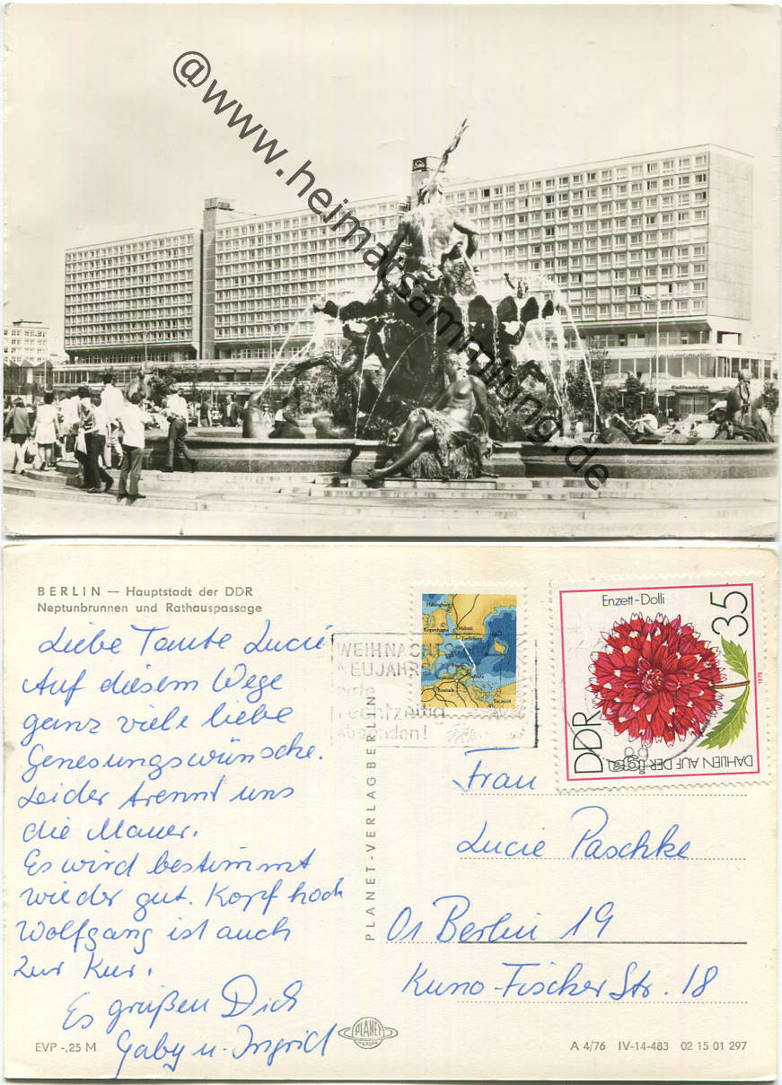 @www.heimatsammlung.de
BERLIN — Hauptstadt der DDR
Neptunbrunnen und Rathauspassage
Liebe Tante Lucie
Auf diesem Wege
ganz viele liebe
Genesungswünsche.
Leider trennt uns
die Mauer.
Es wird bestimmt
wieder gut. Kopf hoch
Wolfgang ist auch
zur Kur.
Es grüßen Dich
Gaby u. Ingrid
EVP -,25 M
PLANET-VERLAG BERLIN
PLANET
WEIHNACHTS-
NEUJAHRSPOST
bitte
rechtzeitig
absenden!
Enzett-Dolli
35
DDR
1979
DAHLIEN AUF DER
Frau
Lucie Paschke
01 Berlin 19
Kuno-Fischer Str. 18
A 4/76 IV-14-483 02 15 01 297